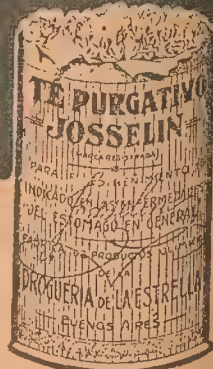 TE PURGATIVO
JOSSELIN
(MARCA REGISTRADA)
PARA EL ESTREÑIMIENTO
INDICADO EN LAS ENFERMEDADES
DEL ESTOMAGO EN GENERAL
PRODUCTOS
DE LA
DROGUERIA DE LA ESTRELLA
BUENOS AIRES